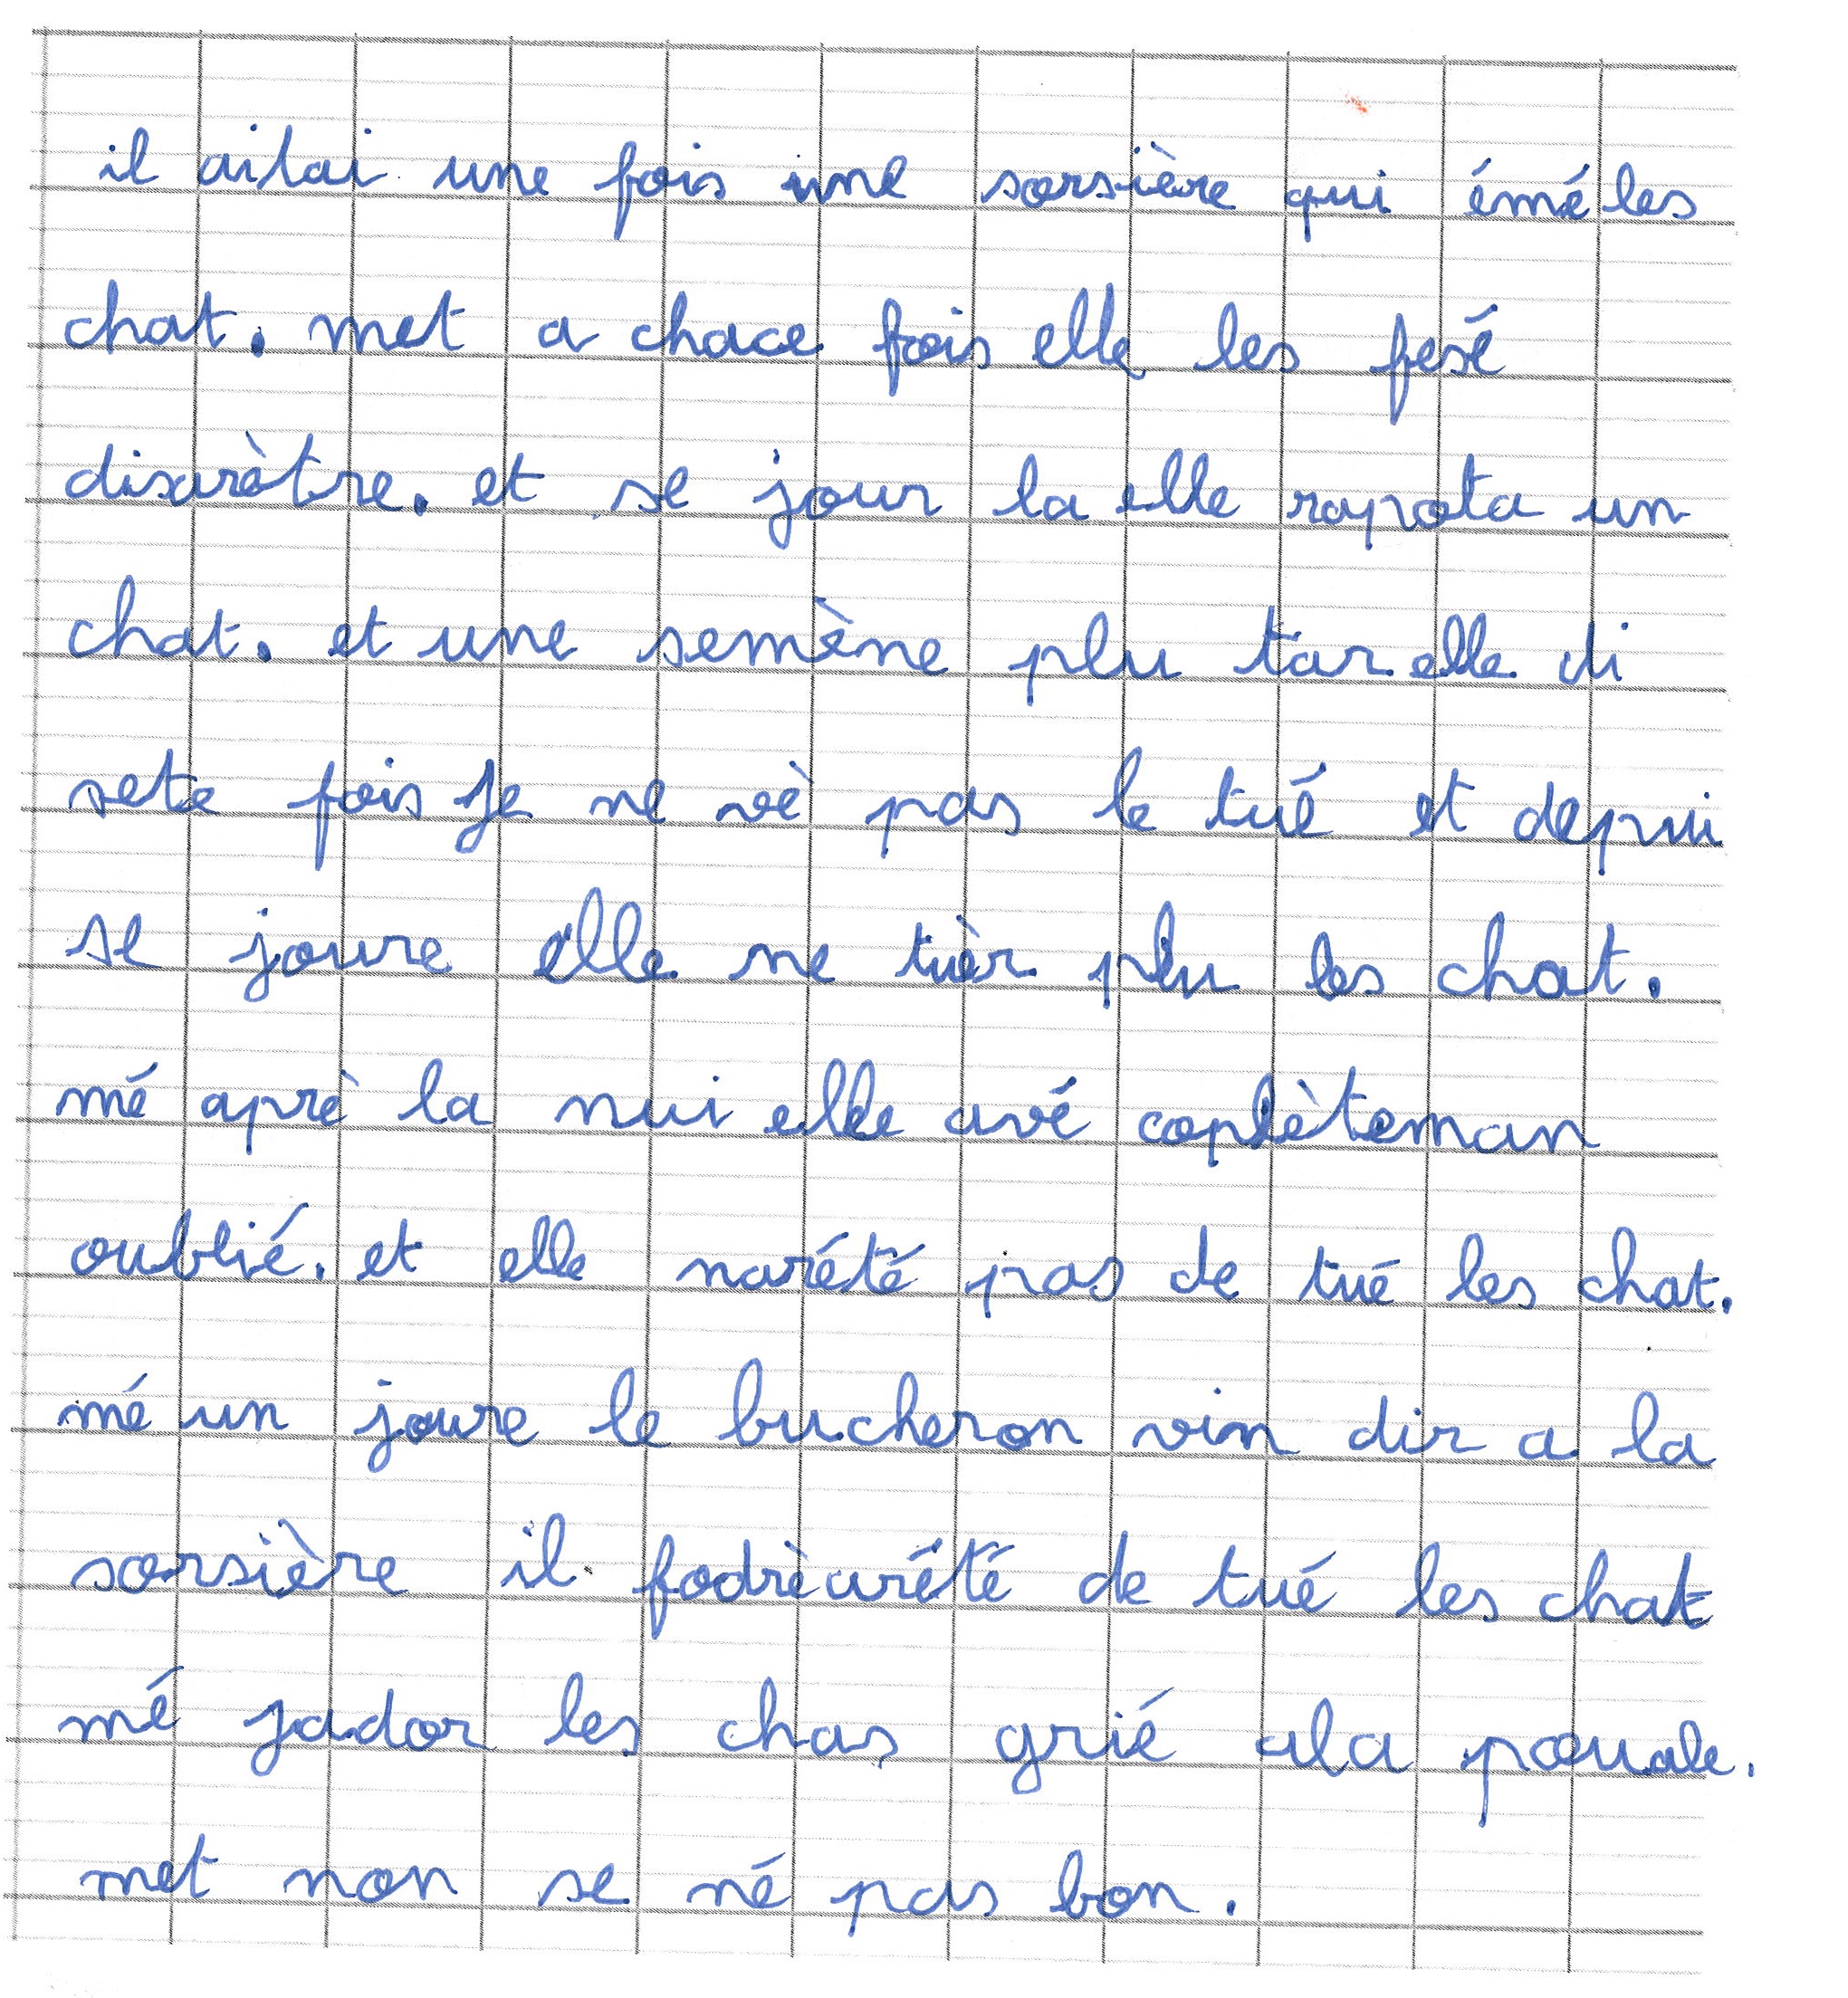 il aitai une fois une sorsière qui émé les
chat. met a chace fois elle les fesé
discrètre. et se jour la elle rapota un
chat. et une semène plu tar elle di
sete fois Je ne vè pas le tué et depui
se joure elle ne tuèr plu les chat.
mé aprè la nui elle avé coplèteman
oublié. et elle narété pas de tué les chat.
mé un joure le bucheron vin dir a la
sorsière il fodrè arété de tué les chat
mé jador les chas grié ala pouale.
met non se né pas bon.